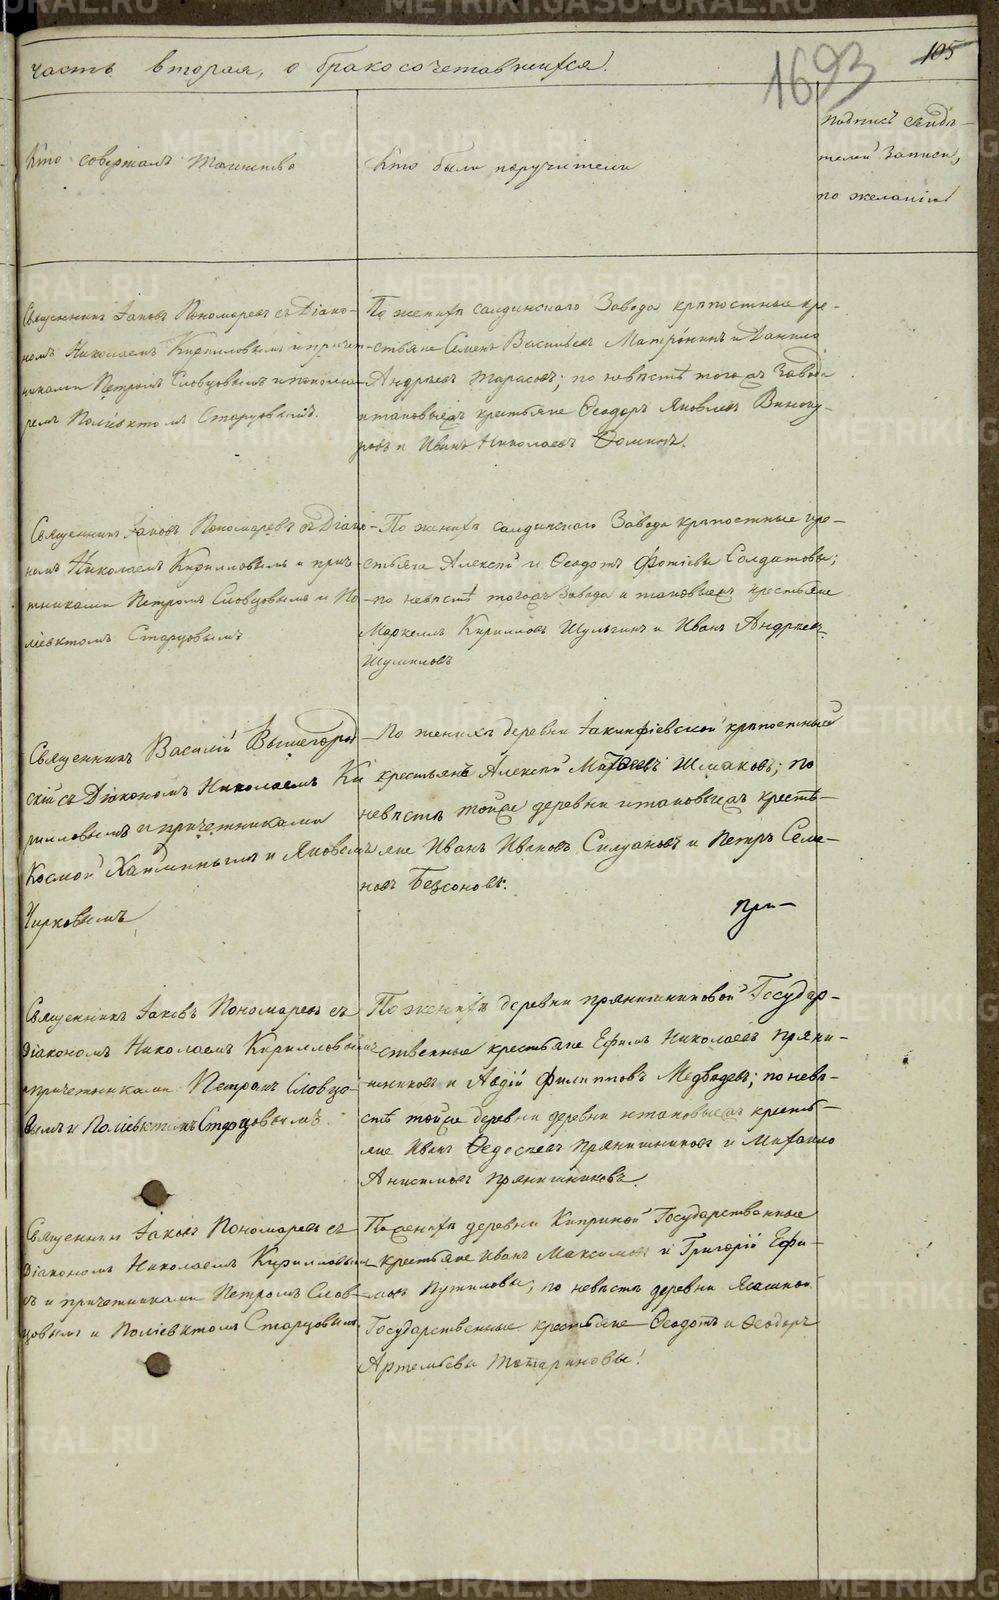 часть вторая, о бракосочетавшихся.
1693
105
Кто совершалъ таинство
Кто были поручители
подпись свидѣ-
телей записи,
по желанію
Священникъ Іаковъ Пономаревъ съ Діако-
номъ Николаемъ Кирилловымъ и причет-
никами Петромъ Словцовымъ и понома-
ремъ Поліевктомъ Старцовымъ.
По женихѣ салдинскаго Завода крѣпостные кре-
стьяне Семенъ Васильевъ и Данило
Андреевъ Тарасовъ; по невѣстѣ того жъ Завода
и таковыежъ крестьяне Ѳеодоръ Яковлевъ Виногу-
ровъ и Иванъ Николаевъ Ѳоминъ.
Священникъ Іаковъ Пономаревъ съ Діако-
номъ Николаемъ Кирилловымъ и приче-
тниками Петромъ Словцовымъ и По-
ліевктомъ Старцовымъ
По женихѣ салдинскаго Завода крѣпостные кре-
стьяне Алексѣй и Ѳеодотъ Фотіевы Солдатовы;
по невѣстѣ тогожъ Завода и таковыежъ крестьяне
Маркеллъ Кириловъ Шульгинъ и Иванъ Андреевъ
Шумиловъ
Священникъ Василій Вышегород-
скій съ Діакономъ Николаемъ Ки
рилловымъ и причетниками
Космой Хайминымъ и Яковомъ
Чирковымъ
По женихѣ деревни Іакинфіевской крѣпостный
крестьянъ Алексѣй Матѳеевъ Шмаковъ; по
невѣстѣ тойже деревни и таковыежъ кресть-
яне Иванъ Ивановъ Силуановъ и Петръ Семе-
новъ Безсоновъ.
При-
Священникъ Іаковъ Пономаревъ съ
Діакономъ Николаемъ Кирилловымъ
и причетниками Петромъ Словцо-
вымъ и Поліевктомъ Старцовымъ.
По женихѣ деревни прянишниковой Государ-
ственные крестьяне Ефимъ Николаевъ Пряни-
шниковъ и Авдій Филипповъ Медвѣдевъ; по невѣ-
стѣ тойже деревни деревни и таковыежъ кресть-
яне Иванъ Ѳедосѣевъ Прянишниковъ и Михаило
Анисимовъ Прянишниковъ.
Священникъ Іаковъ Пономаревъ съ
Діакономъ Николаемъ Кирилловым
ъ и причетниками Петромъ Слов-
цовымъ и Поліевктомъ Старцовымъ
По женихѣ деревни Киприной Государственные
крестьяне Иванъ Максимовъ и Григорій Ефи-
мовъ Путиловы; по невѣстѣ деревни Ясашной
Государственные крестьяне Ѳеодотъ и Ѳеодоръ
Артемьевы Татариновы!